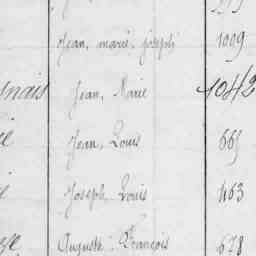 Jean, marie, joseph 1009
gnais Jean, Marie 1042
Jean, Louis 665
Joseph, Louis 463
Auguste François 678